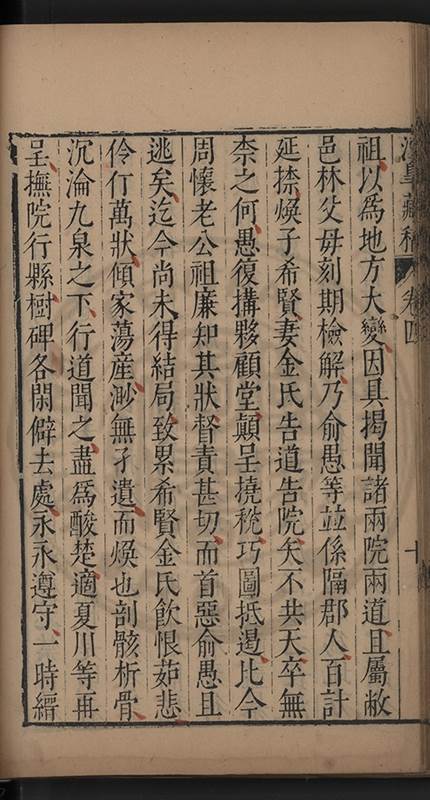 卷四
祖以為地方大變因具揭聞諸兩院兩道且屬敝
邑林父母刻期檢解乃俞愚等並係隔郡人百計
延捺煥子希賢妻金氏告道告院矢不共天卒無
柰之何愚復搆夥顧堂顛呈撓稅巧圖抵遏比今
周懷老公祖廉知其狀督責甚切而首惡俞愚且
逃矣迄今尚未得結局致累希賢金氏飲恨茹悲
伶仃萬狀傾家蕩產渺無孑遺而煥也剖骸析骨
沉淪九泉之下行道聞之盡為酸楚適夏川等再
呈撫院行縣樹碑各閑僻去處永永遵守一時縉